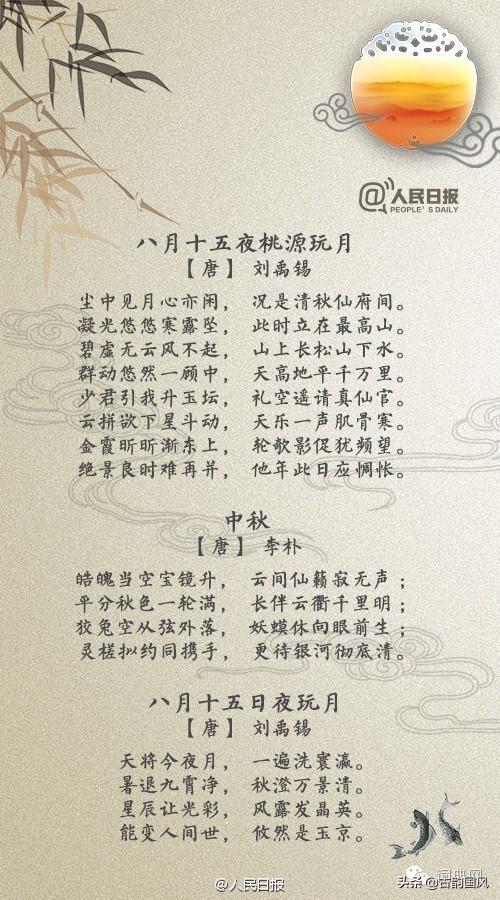 @人民日报
PEOPLE'S DAILY
八月十五夜桃源玩月
【唐】 刘禹锡
尘中见月心亦闲， 况是清秋仙府间。
凝光悠悠寒露坠， 此时立在最高山。
碧虚无云风不起， 山上长松山下水。
群动悠然一顾中， 天高地平千万里。
少君引我升玉坛， 礼空遥请真仙官。
云拼欲下星斗动， 天乐一声肌骨寒。
金霞昕昕渐东上， 轮欹影促犹频望。
绝景良时难再并， 他年此日应惆怅。
中秋
【唐】 李朴
皓魄当空宝镜升， 云间仙籁寂无声；
平分秋色一轮满， 长伴云衢千里明；
狡兔空从弦外落， 妖蟆休向眼前生；
灵槎拟约同携手， 更待银河彻底清。
八月十五日夜玩月
【唐】 刘禹锡
天将今夜月， 一遍洗寰瀛。
暑退九霄净， 秋澄万景清。
星辰让光彩， 风露发晶英。
能变人间世， 攸然是玉京。
词典网
@人民日报
头条 @古韵国风